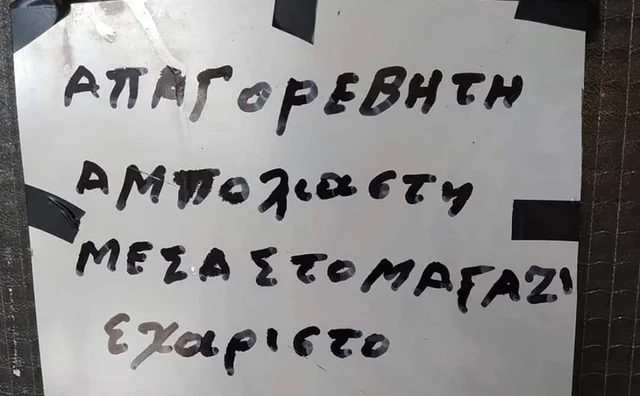 ΑΠΑΓΟΡΕΒΗΤΗ
ΑΜΠΟλιαστη
ΜΕΣΑ ΣΤΟ ΜΑΓΑΖΙ
Εχαριστο